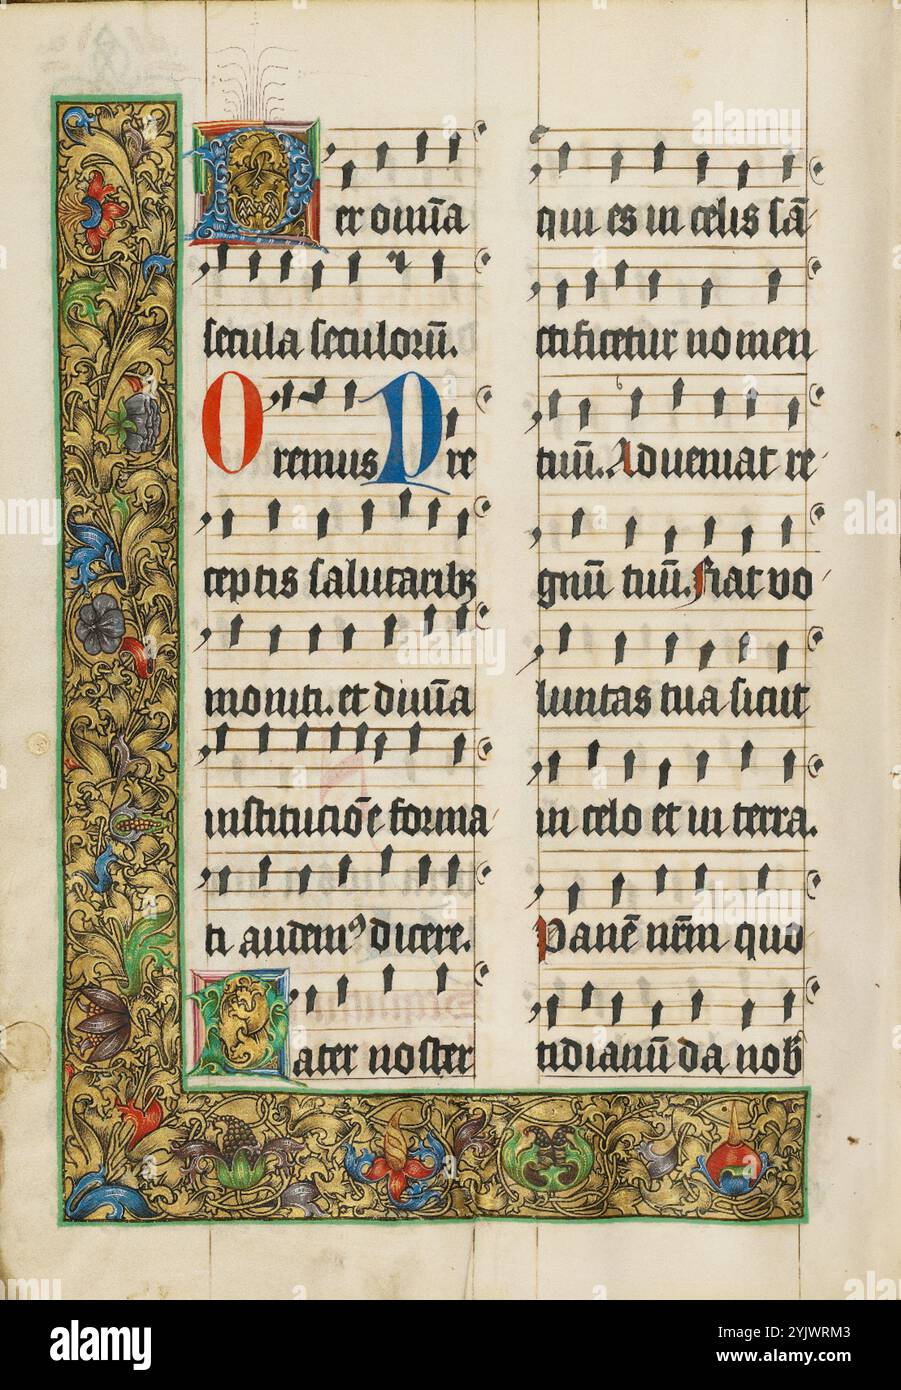 Per om̄ia
secula seculorū.
Oremus Pre
ceptis salutaribꝫ
moniti. et diuīa
institucioē forma
ti audemꝰ dicere.
Pater noster
qui es in celis sā
ctificetur nomen
tuū. Adueniat re
gnū tuū. Fiat vo
luntas tua sicut
in celo et in terra.
Panē nr̄m quo
tidianū da nob̄
alamy
Image ID: 2YJWRM3
www.alamy.com